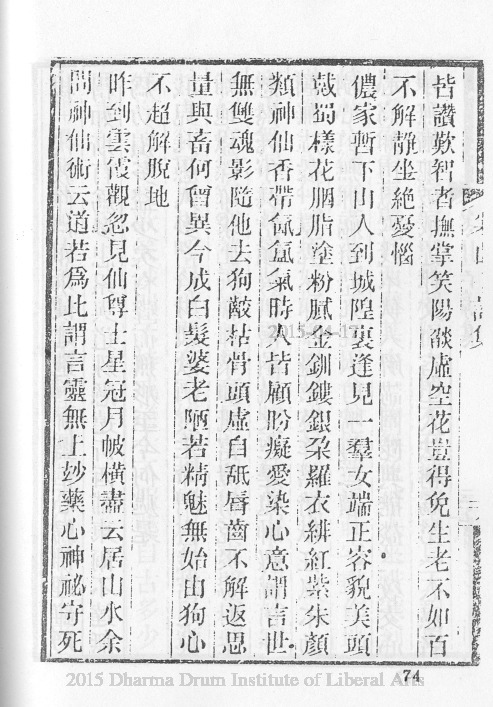 皆讚歎智者撫掌笑陽燄虛空花豈得免生老不如百
不解靜坐絕憂惱
儂家暫下山入到城隍裏逢見一羣女端正容貌美頭
戴蜀樣花胭脂塗粉膩金釧鏤銀朵羅衣緋紅紫朱顏
類神仙香帶氛氳氣時人皆顧盻癡愛染心意謂言世
無雙魂影隨他去狗齩枯骨頭虛自舐唇齒不解返思
量與畜何曾異今成白髮婆老陋若精魅無始由狗心
不超解脫地
昨到雲霞觀忽見仙尊士星冠月帔橫盡云居山水余
問神仙術云道若爲比謂言靈無上妙藥心神祕守死
74
2015 Dharma Drum Institute of Liberal Arts